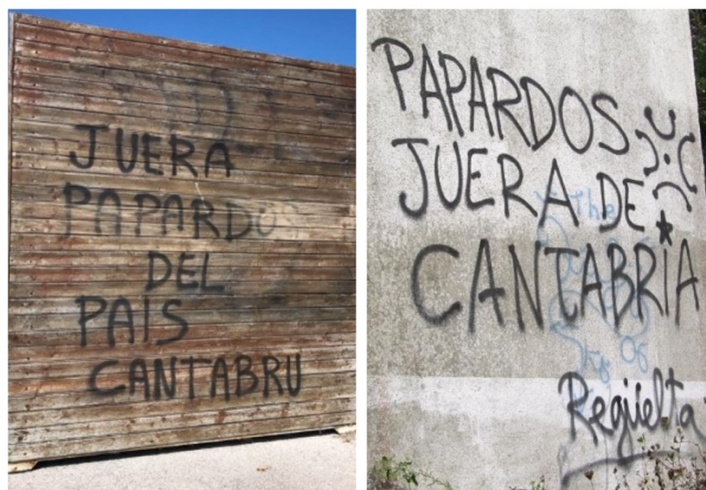 JUERA
PAPARDOS
DEL
PAIS
CANTABRU
PAPARDOS
JUERA DE
CANTABRIA
The
Of
Regüelta